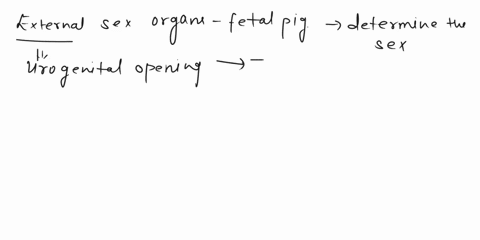 External sex organs - fetal pig → determine the
sex
Urogenital opening → -